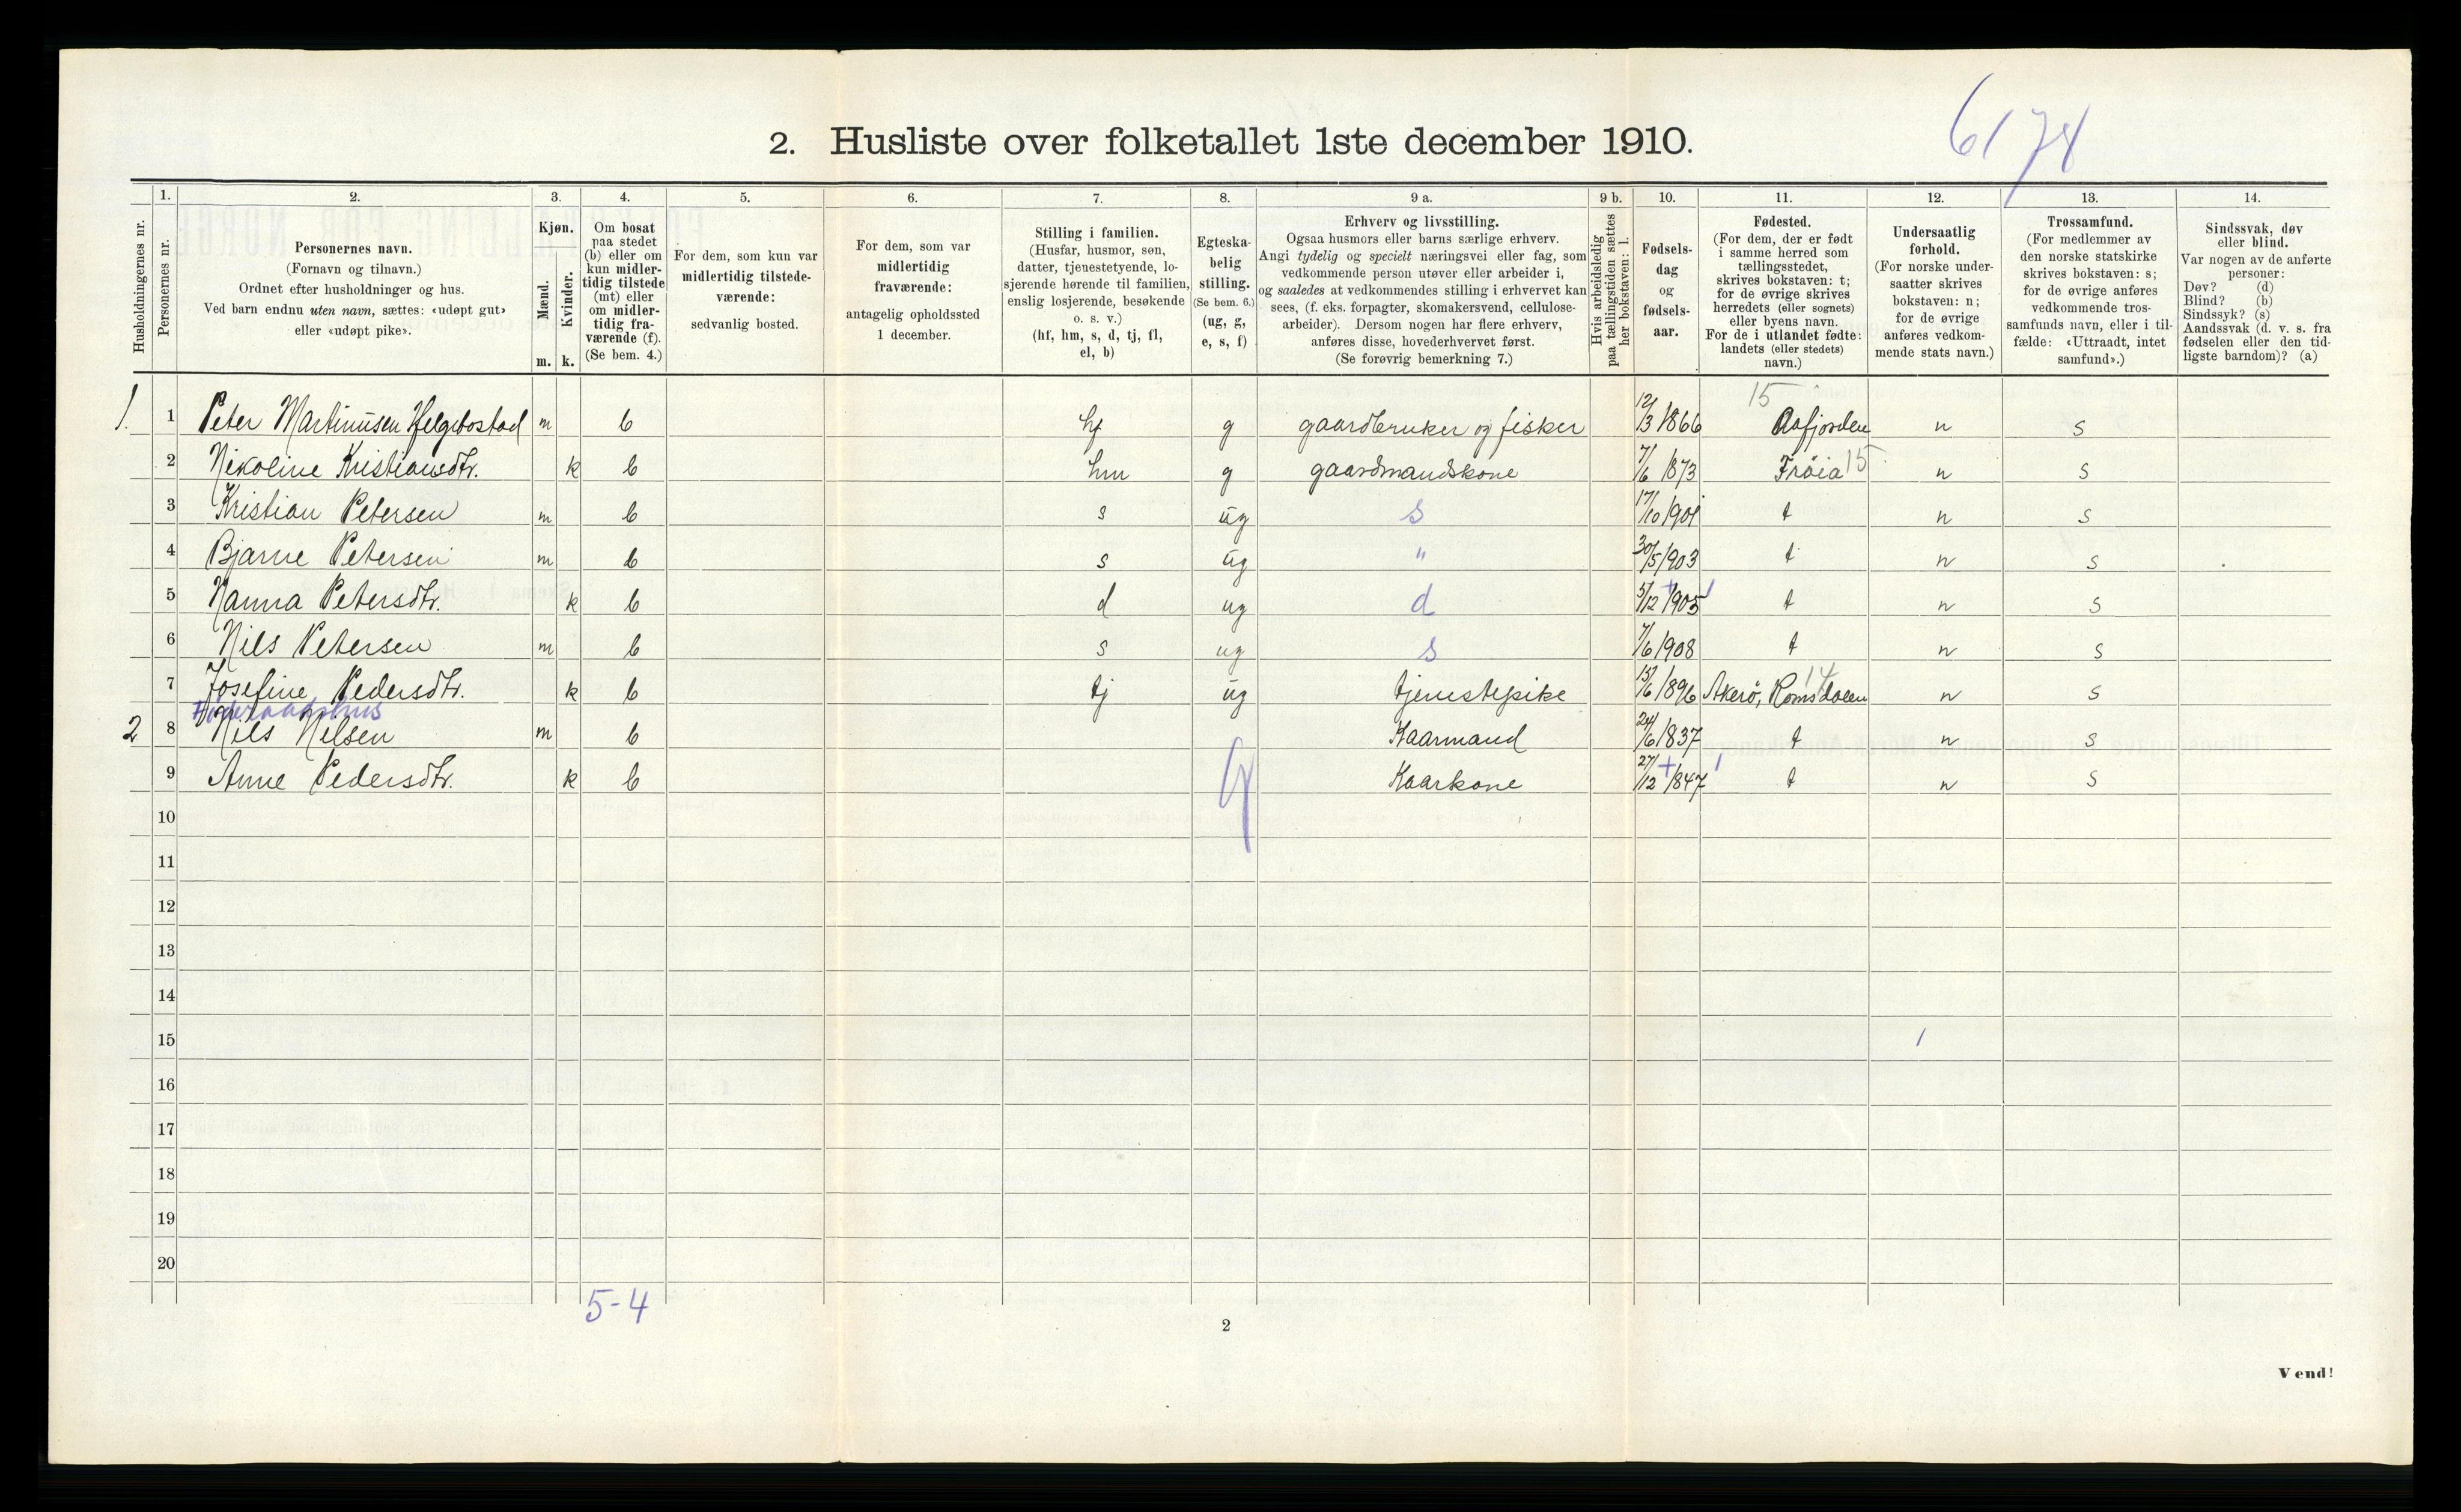 6174
2. Husliste over folketallet 1ste december 1910.
Husholdningernes nr.
1.
Personernes nr.
2.
Personernes navn.
(Fornavn og tilnavn.)
Ordnet efter husholdninger og hus.
Ved barn endnu uten navn, sættes: «udøpt gut»
eller «udøpt pike».
3.
Kjøn.
Mænd.
Kvinder.
m. k.
4.
Om bosat
paa stedet
(b) eller om
kun midler-
tidig tilstede
(mt) eller
om midler-
tidig fra-
værende (f).
(Se bem. 4.)
5.
For dem, som kun var
midlertidig tilstede-
værende:
sedvanlig bosted.
6.
For dem, som var
midlertidig
fraværende:
antagelig opholdssted
1 december.
7.
Stilling i familien.
(Husfar, husmor, søn,
datter, tjenestetyende, lo-
sjerende hørende til familien,
enslig losjerende, besøkende
o. s. v.)
(hf, hm, s, d, tj, fl,
el, b)
8.
Egteska-
belig
stilling.
(Se bem. 6.)
(ug, g,
e, s, f)
9 a.
Erhverv og livsstilling.
Ogsaa husmors eller barns særlige erhverv.
Angi tydelig og specielt næringsvei eller fag, som
vedkommende person utøver eller arbeider i,
og saaledes at vedkommendes stilling i erhvervet kan
sees, (f. eks. forpagter, skomakersvend, cellulose-
arbeider). Dersom nogen har flere erhverv,
anføres disse, hovederhvervet først.
(Se forøvrig bemerkning 7.)
9 b.
Hvis arbeidsledig
paa tællingstiden sættes
her bokstaven: l.
10.
Fødsels-
dag
og
fødsels-
aar.
11.
Fødested.
(For dem, der er født
i samme herred som
tællingsstedet,
skrives bokstaven: t;
for de øvrige skrives
herredets (eller sognets)
eller byens navn.
For de i utlandet fødte:
landets (eller stedets)
navn.)
12.
Undersaatlig
forhold.
(For norske under-
saatter skrives
bokstaven: n;
for de øvrige
anføres vedkom-
mende stats navn.)
13.
Trossamfund.
(For medlemmer av
den norske statskirke
skrives bokstaven: s;
for de øvrige anføres
vedkommende tros-
samfunds navn, eller i til-
fælde: «Uttraadt, intet
samfund».)
14.
Sindssvak, døv
eller blind.
Var nogen av de anførte
personer:
Døv? (d)
Blind? (b)
Sindssyk? (s)
Aandssvak (d. v. s. fra
fødselen eller den tid-
ligste barndom)? (a)
1. 1 Peter Martinusen Helgebostad m b hf g gaardbruker og fisker 12/3 1866 15 Aafjorden n s
2 Nikoline Kristiansdtr. k b hm g gaardmandskone 7/6 1873 Frøia 15 n s
3 Kristian Petersen m b s ug s 17/10 1901 t n s
4 Bjarne Petersen m b s ug " 30/5 1903 t n s
5 Nanna Petersdtr. k b d ug d 5/12 + 1905 t n s
6 Nils Petersen m b s ug s 7/6 1908 t n s
7 Josefine Pedersdtr. k b tj ug tjenestepike 15/6 1896 Akerø, Romsdalen 14 n s
Føderaadshus
2 8 Nils Nilsen m b g Kaarmand 24/6 1837 t n s
9 Anne Pedersdtr. k b Kaarkone 27/12 + 1847 t n s
10
11
12
13
14
15
16
17
18
19
20
5-4
2
Vend!